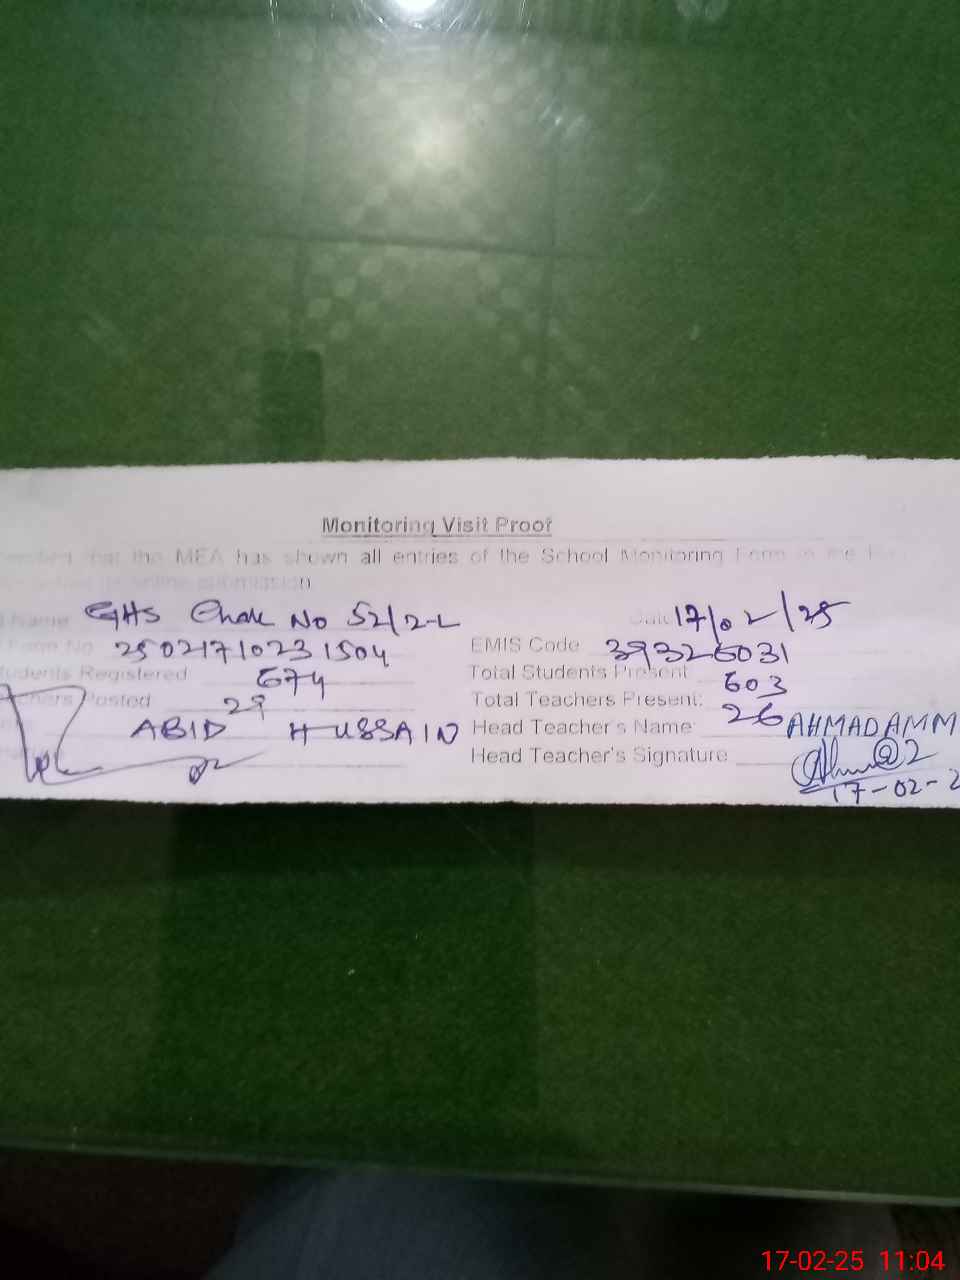 Monitoring Visit Proof
that the MEA has shown all entries of the School Monitoring Form in the
online submission
Name GHS Chak No 52/2-L Date 17/02/25
Form No 2502171023 1504 EMIS Code 39326031
Students Registered 674 Total Students Present 603
Teachers Posted 29 Total Teachers Present: 26
ABID HUSSAIN Head Teacher's Name: AHMAD AMM
Head Teacher's Signature
17-02-2
17-02-25 11:04